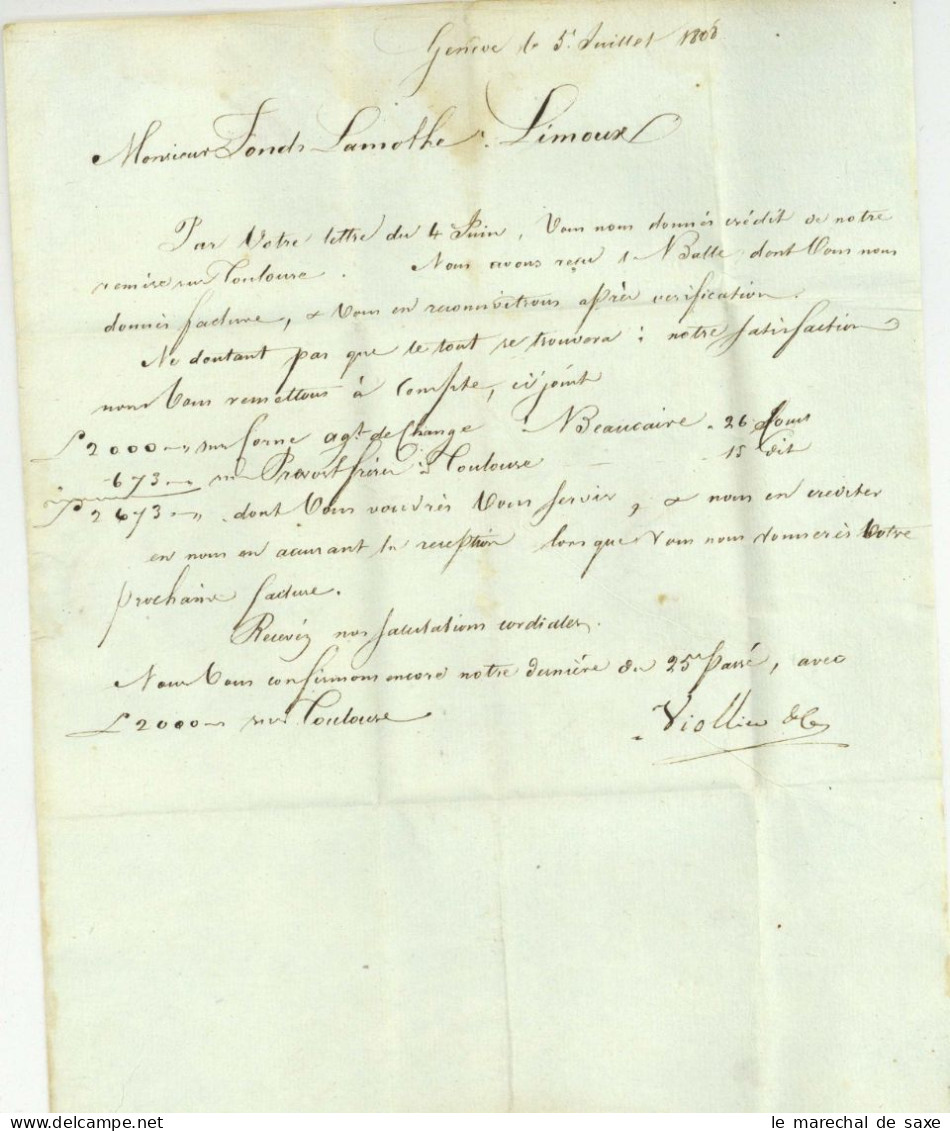 Genève le 5e. Juillet 1808
Monsieur Fonds Lamothe à Limoux
Par Votre lettre du 4 Juin, Vous nous donnés crédit de notre
remise sur Toulouse. Nous avons reçu 1 Balle dont Vous nous
donnés facture, & Vous en reconnoitrons après verification.
Ne doutant pas que le tout se trouvera à notre satisfaction
nous Vous remettons à Compte, ci joint
£ 2000 " sur forne agt. de Change à Beaucaire . 26 Cours
673 " sur Provost frères à Toulouse 15 dit
£ 2673 " " dont Vous voudrés Vous servir, & nous en crediter
en nous en acusant la reception lorsque Vous nous donnerés Votre
prochaine facture.
Recevéz nos salutations cordiales.
Nous Vous confirmons encore notre dernière du 25e passé, avec
£ 2000 " sur Toulouse
Viollier & Ce
le marechal de saxe